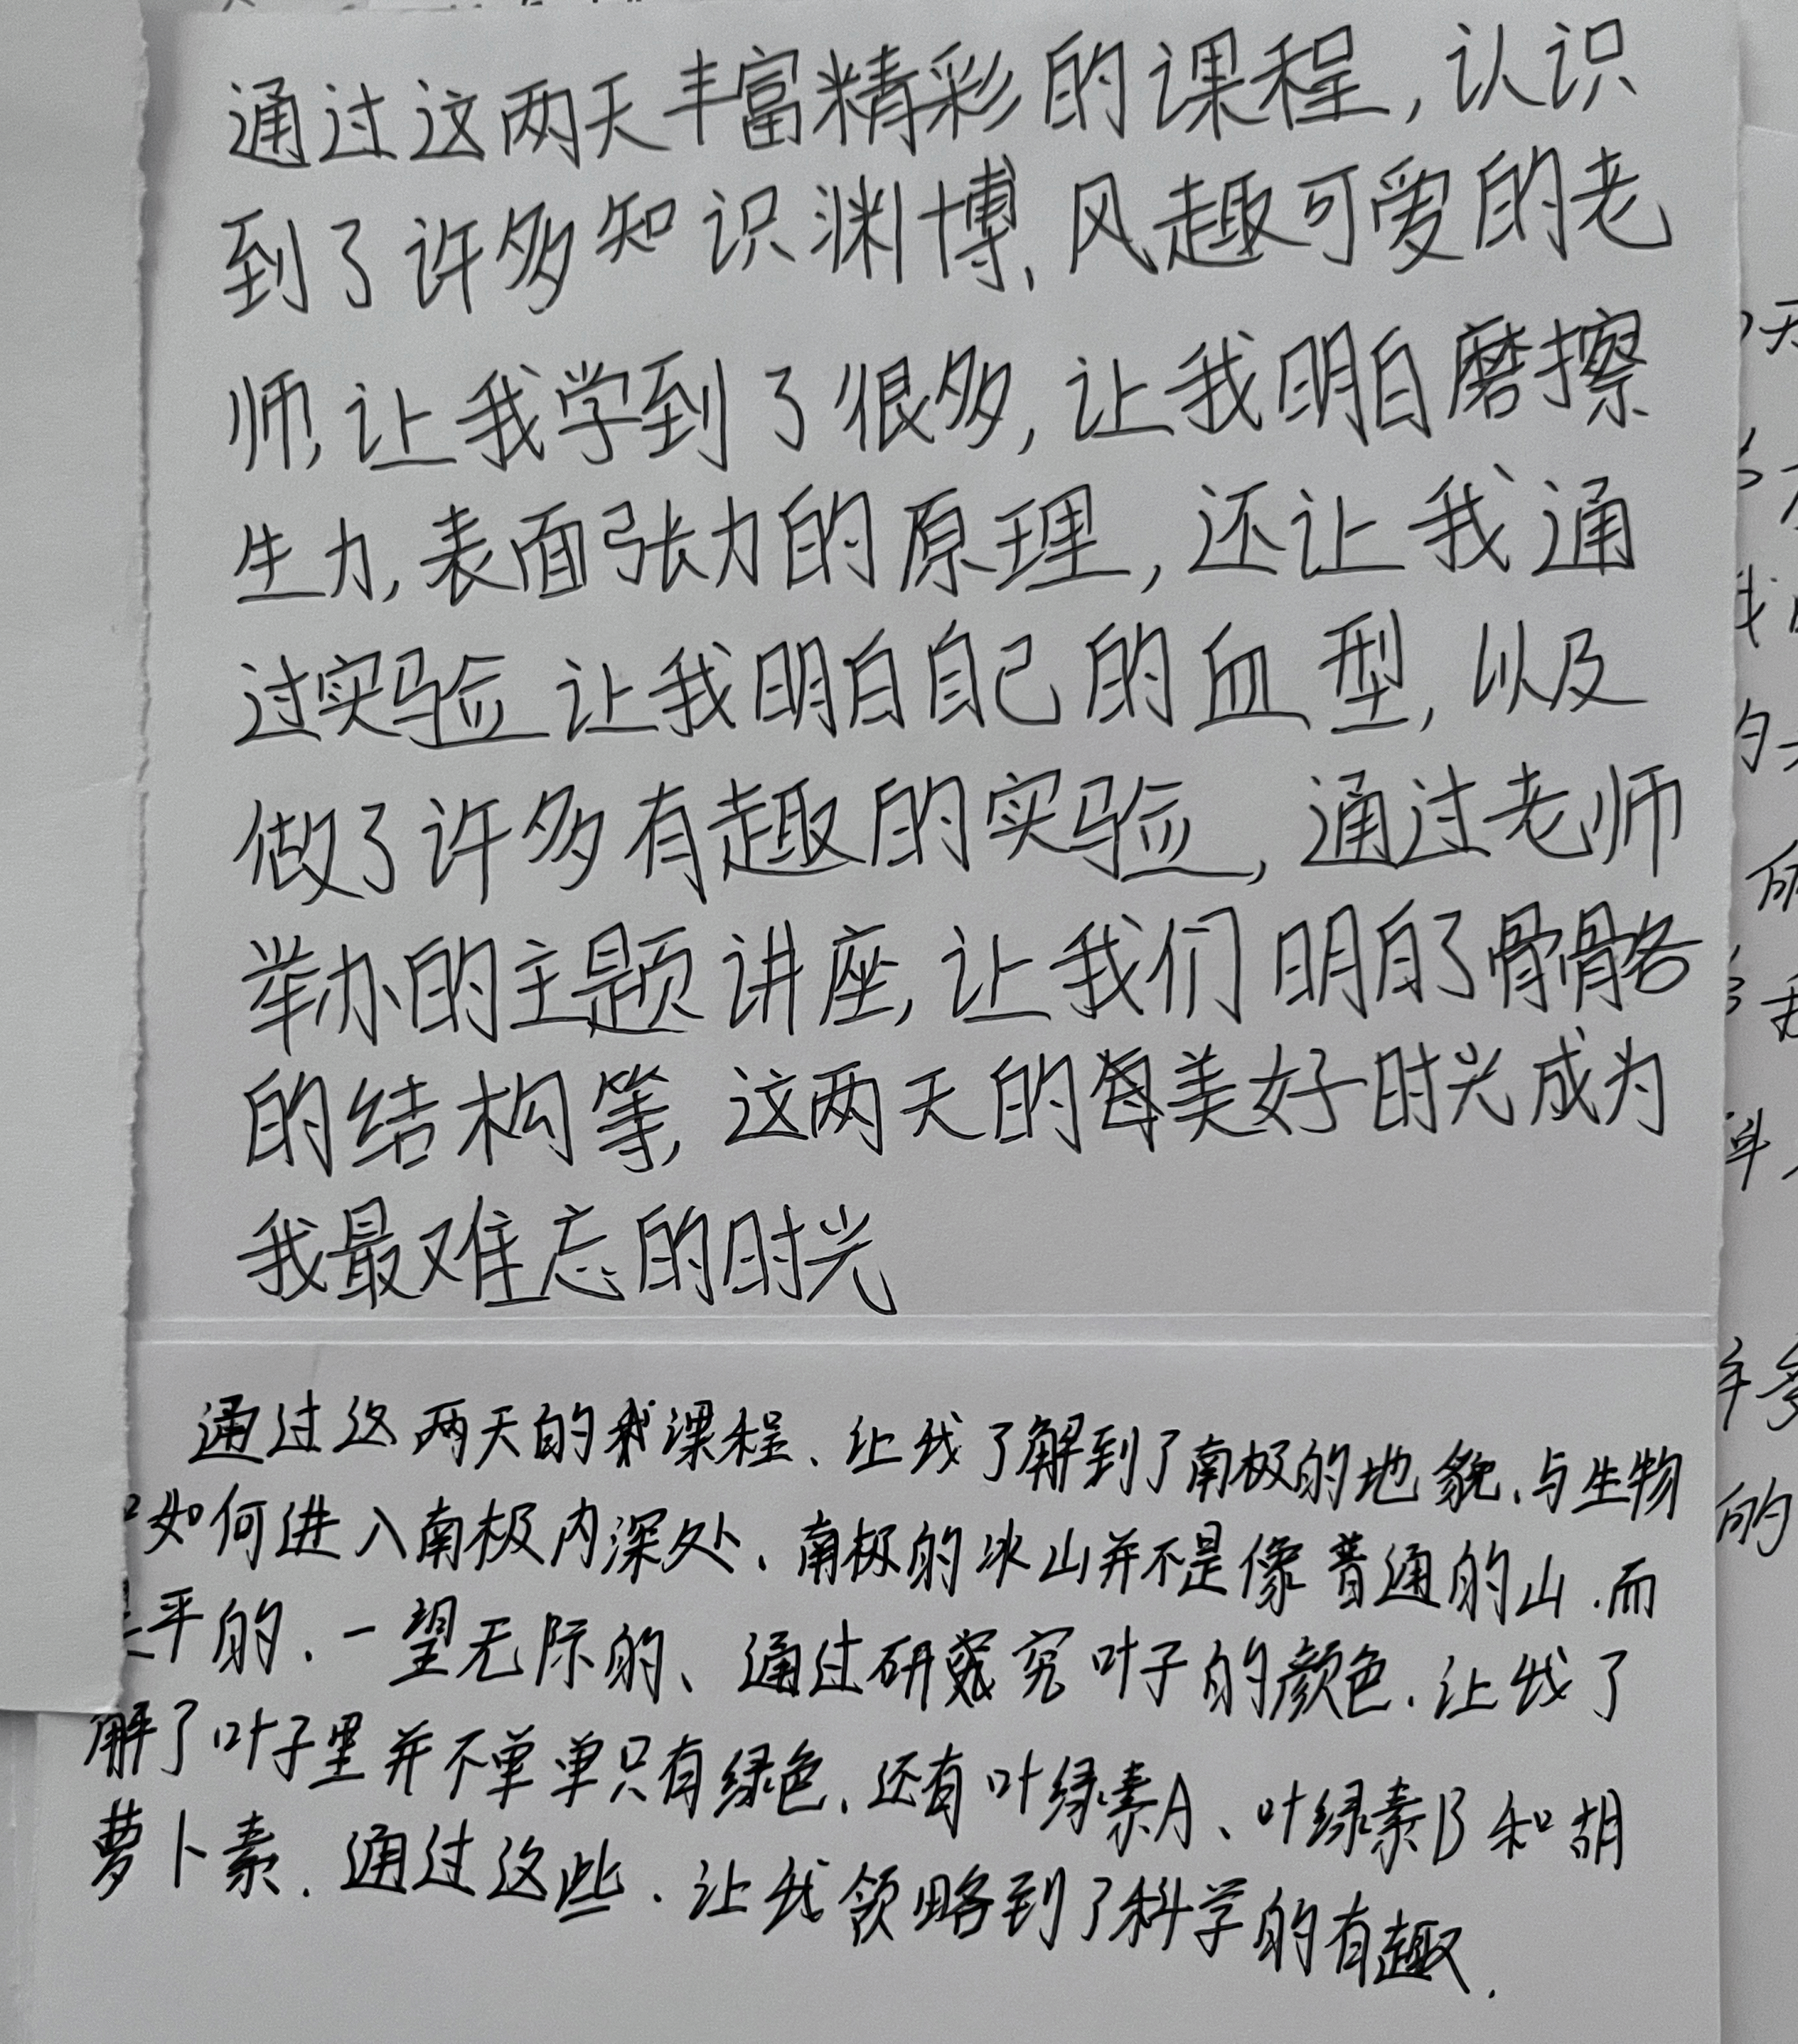 通过这两天丰富精彩的课程,认识
到了许多知识渊博、风趣可爱的老
师,让我学到了很多,让我明白磨擦
生力,表面张力的原理,还让我通
过实验让我明白自己的血型,以及
做了许多有趣的实验,通过老师
举办的主题讲座,让我们明白了骨骼
的结构等,这两天的美好时光成为
我最难忘的时光
通过这两天的课程、让我了解到了南极的地貌、与生物
如何进入南极内深处、南极的冰山并不是像普通的山.而
平的、一望无际的、通过研究叶子的颜色.让我了
解了叶子里并不单单只有绿色、还有叶绿素A、叶绿素B和胡
萝卜素.通过这些.让我领略到了科学的有趣.